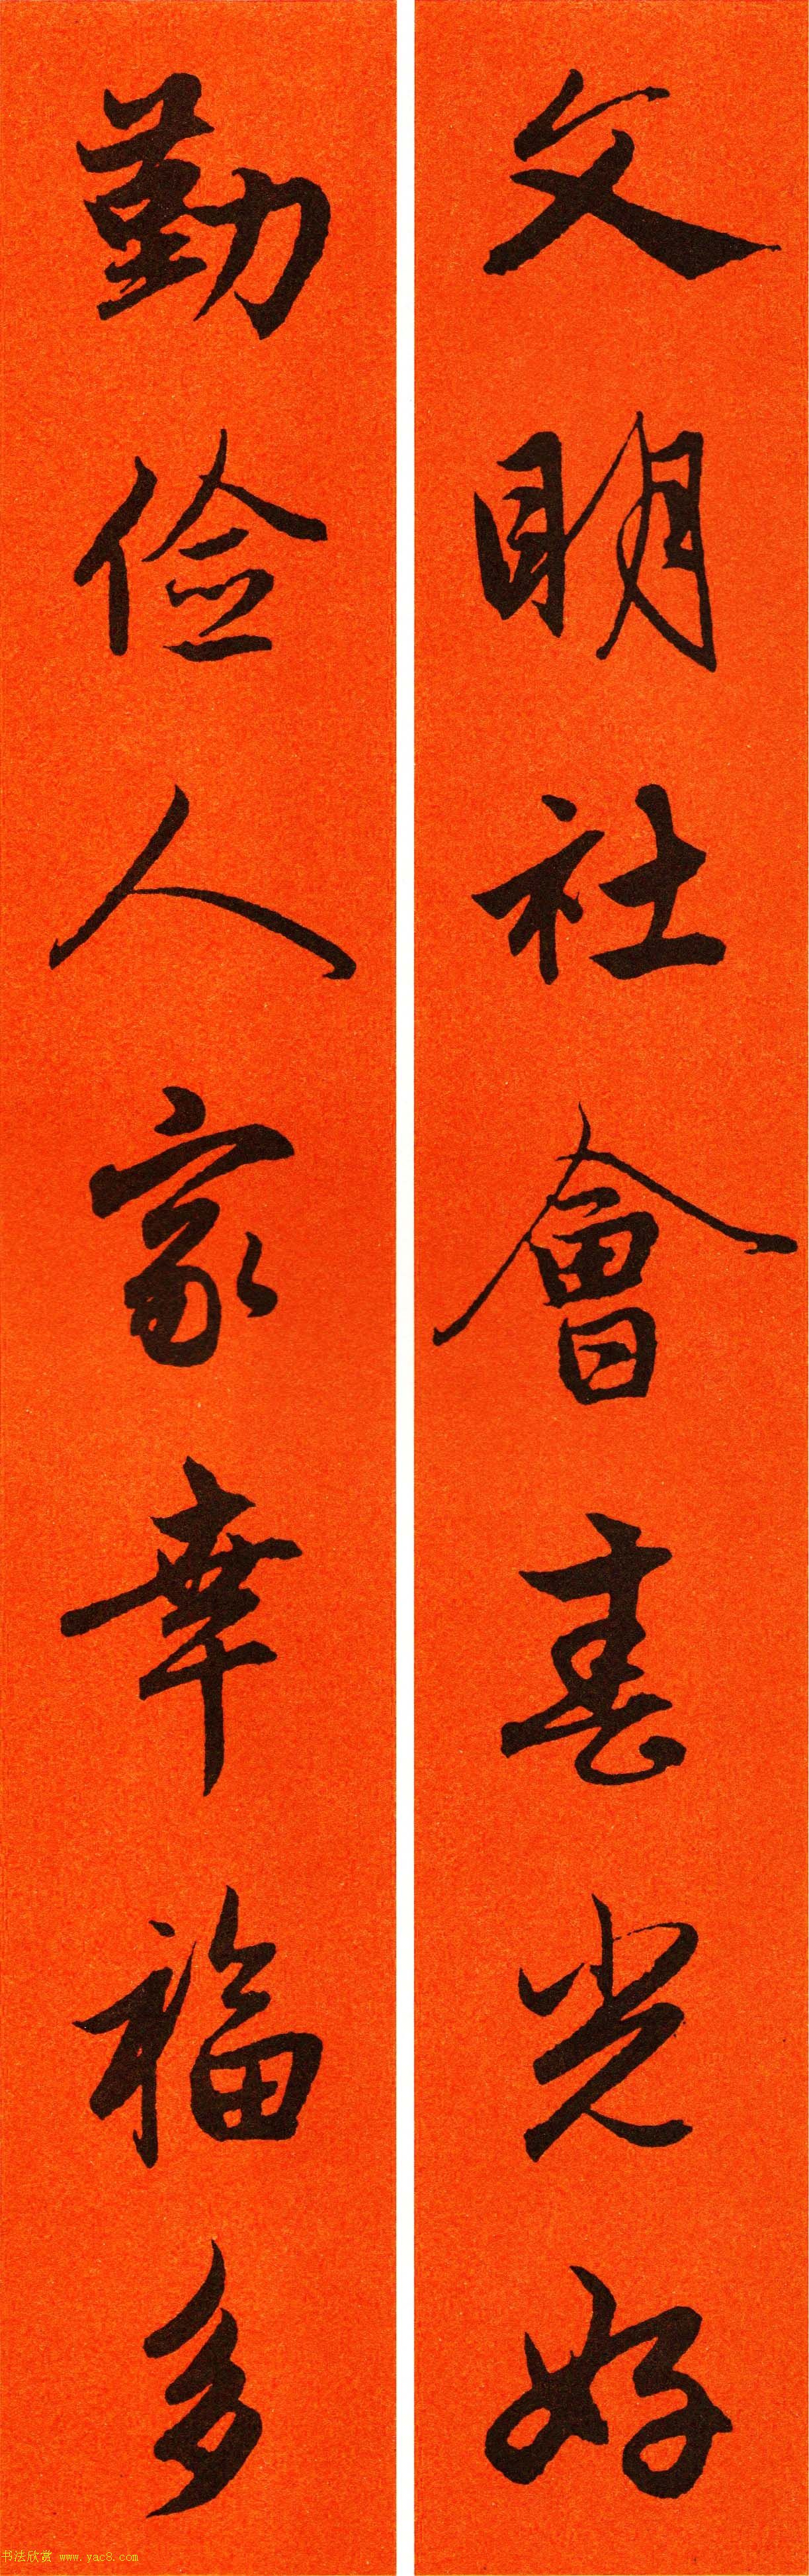 文明社會春光好
勤俭人家幸福多
书法欣赏 www.yac8.com